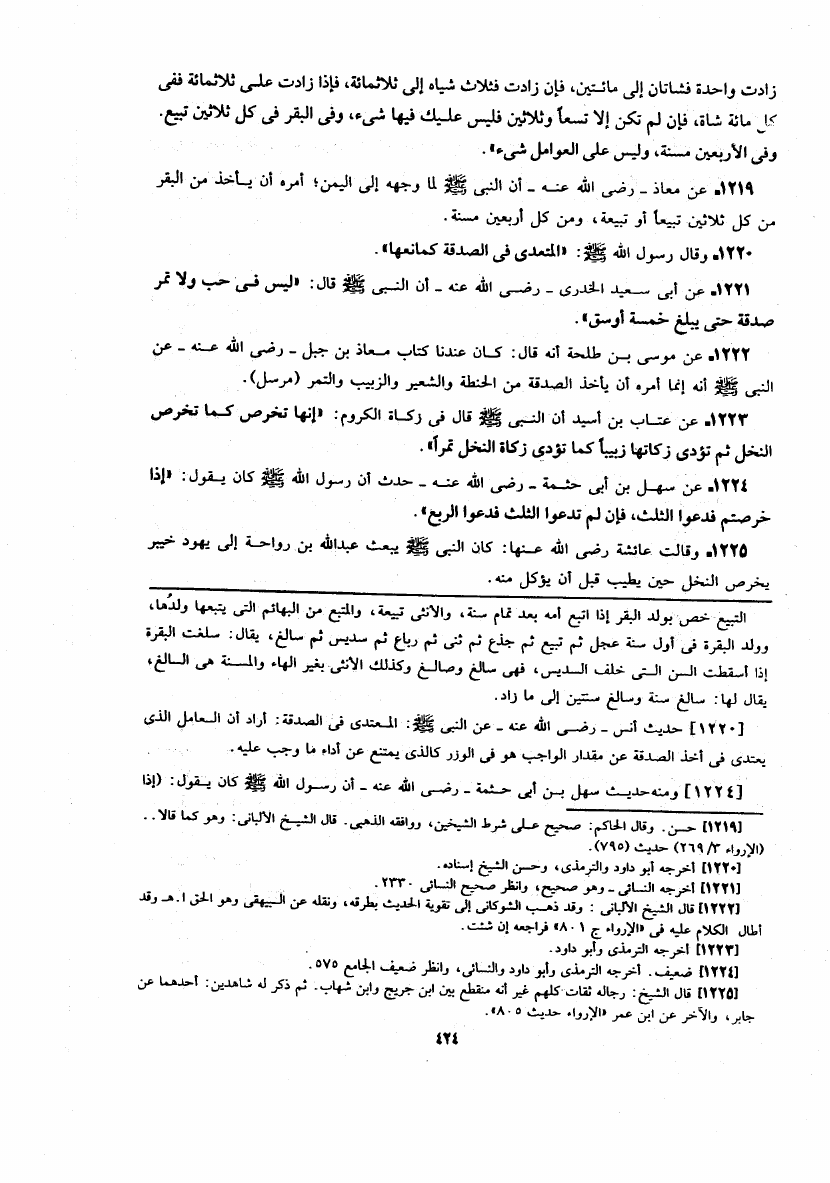 زادت واحدة فشاتان إلى مائتين، فإن زادت فثلاث شياه إلى ثلاثمائة، فإذا زادت على ثلاثمائة ففى
كل مائة شاة، فإن لم تكن إلا تسعاً وثلاثين فليس عليك فيها شىء، وفى البقر فى كل ثلاثين تبيع.
وفى الأربعين مسنة، وليس على العوامل شىء».
١٢١٩ـ عن معاذ ـ رضى الله عنه ـ أن النبى ﷺ لما وجهه إلى اليمن؛ أمره أن يأخذ من البقر
من كل ثلاثين تبيعاً أو تبيعة، ومن كل أربعين مسنة.
١٢٢٠ـ وقال رسول الله ﷺ: «المتعدى فى الصدقة كمانعها».
١٢٢١ـ عن أبى سعيد الخدرى ـ رضى الله عنه ـ أن النبى ﷺ قال: «ليس فى حب ولا تمر
صدقة حتى يبلغ خمسة أوسق».
١٢٢٢ـ عن موسى بن طلحة أنه قال: كان عندنا كتاب معاذ بن جبل ـ رضى الله عنه ـ عن
النبى ﷺ أنه إنما أمره أن يأخذ الصدقة من الحنطة والشعير والزبيب والتمر (مرسل).
١٢٢٣ـ عن عتاب بن أسيد أن النبى ﷺ قال فى زكاة الكروم: «إنها تخرص كما تخرص
النخل ثم تؤدى زكاتها زبيباً كما تؤدى زكاة النخل تمراً».
١٢٢٤ـ عن سهل بن أبى حثمة ـ رضى الله عنه ـ حدث أن رسول الله ﷺ كان يقول: «إذا
خرصتم فدعوا الثلث، فإن لم تدعوا الثلث فدعوا الربع».
١٢٢٥ـ وقالت عائشة رضى الله عنها: كان النبى ﷺ يبعث عبدالله بن رواحة إلى يهود خيبر
يخرص النخل حين يطيب قبل أن يؤكل منه.
التبيع خص بولد البقر إذا اتبع أمه بعد تمام سنة، والأنثى تبيعة، والمتبع من البهائم التى يتبعها ولدُها،
وولد البقرة فى أول سنة عجل ثم تبيع ثم جذع ثم ثنى ثم رباع ثم سديس ثم سالغ، يقال: سلغت البقرة
إذا أسقطت السن التى خلف السديس، فهى سالغ وصالغ وكذلك الأنثى بغير الهاء والمسنة هى السالغ،
يقال لها: سالغ سنة وسالغ سنتين إلى ما زاد.
[١٢٢٠] حديث أنس ـ رضى الله عنه ـ عن النبى ﷺ: المعتدى فى الصدقة: أراد أن العامل الذى
يعتدى فى أخذ الصدقة عن مقدار الواجب هو فى الوزر كالذى يمتنع عن أداء ما وجب عليه.
[١٢٢٤] ومنه حديث سهل بن أبى حثمة ـ رضى الله عنه ـ أن رسول الله ﷺ كان يقول: (إذا
[١٢١٩] حسن. وقال الحاكم: صحيح على شرط الشيخين، ووافقه الذهبى. قال الشيخ الألبانى: وهو كما قالا..
(الإرواء ٣/ ٢٦٩) حديث (٧٩٥).
[١٢٢٠] أخرجه أبو داود والترمذى، وحسن الشيخ إسناده.
[١٢٢١] أخرجه النسائى ـ وهو صحيح، وانظر صحيح النسائى ٢٣٣٠.
[١٢٢٢] قال الشيخ الألبانى : وقد ذهب الشوكانى إلى تقوية الحديث بطرقه، ونقله عن البيهقى وهو الحق ا.هـ وقد
أطال الكلام عليه فى «الإرواء ج ٨٠١» فراجعه إن شئت.
[١٢٢٣] أخرجه الترمذى وأبو داود.
[١٢٢٤] ضعيف. أخرجه الترمذى وأبو داود والنسائى، وانظر ضعيف الجامع ٥٧٥.
[١٢٢٥] قال الشيخ: رجاله ثقات كلهم غير أنه منقطع بين ابن جريج وابن شهاب. ثم ذكر له شاهدين: أحدهما عن
جابر، والآخر عن ابن عمر «الإرواء حديث ٨٠٥».
٤٢٤